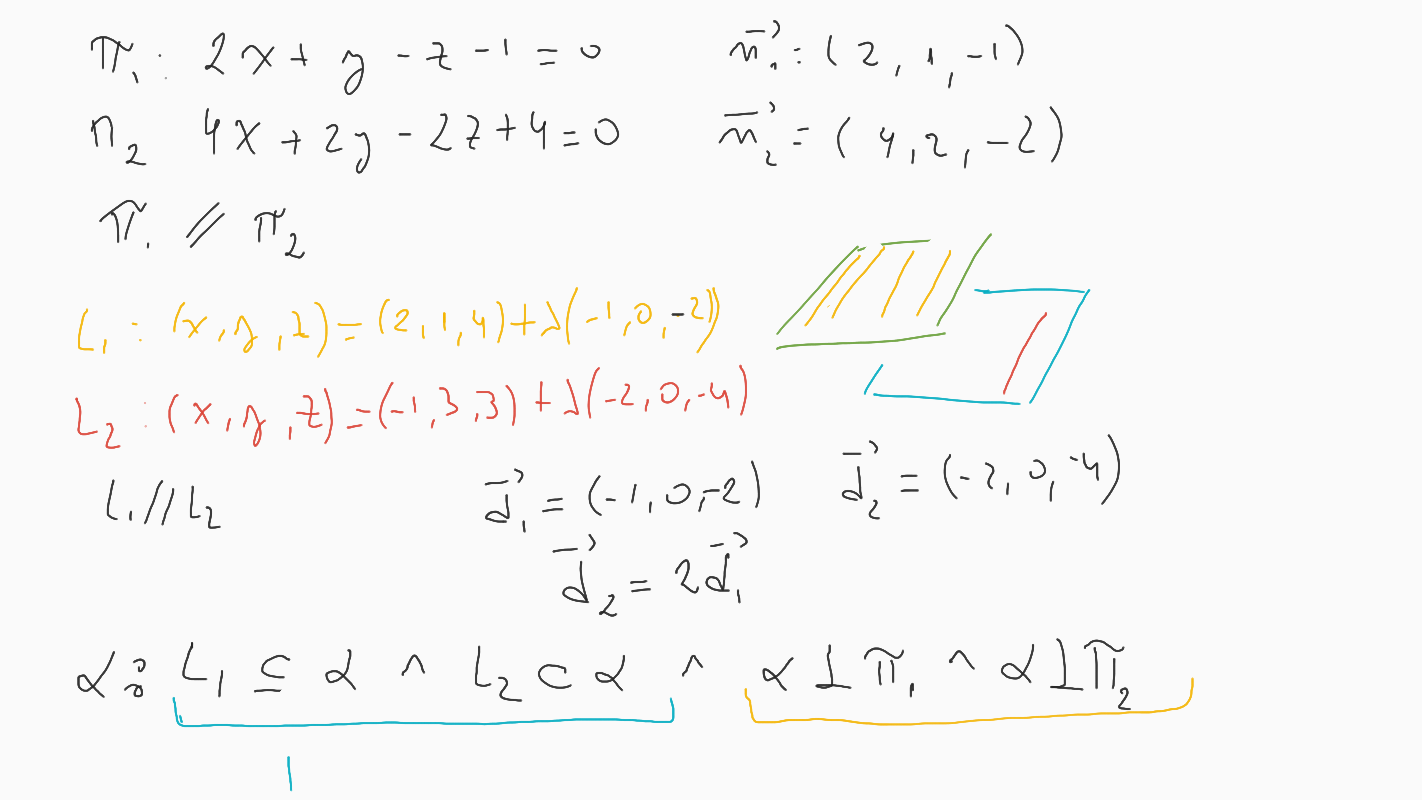 π₁: 2x + y - z - 1 = 0 n⃗₁: (2, 1, -1)
π₂ 4x + 2y - 2z + 4 = 0 n⃗₂ = (4, 2, -2)
π₁ // π₂
L₁: (x, y, z) = (2, 1, 4) + λ(-1, 0, -2)
L₂: (x, y, z) = (-1, 3, 3) + λ(-2, 0, -4)
L₁ // L₂ d⃗₁ = (-1, 0, -2) d⃗₂ = (-2, 0, -4)
d⃗₂ = 2d⃗₁
α: L₁ ⊆ α ∧ L₂ ⊂ α ∧ α ⊥ π₁ ∧ α ⊥ π₂